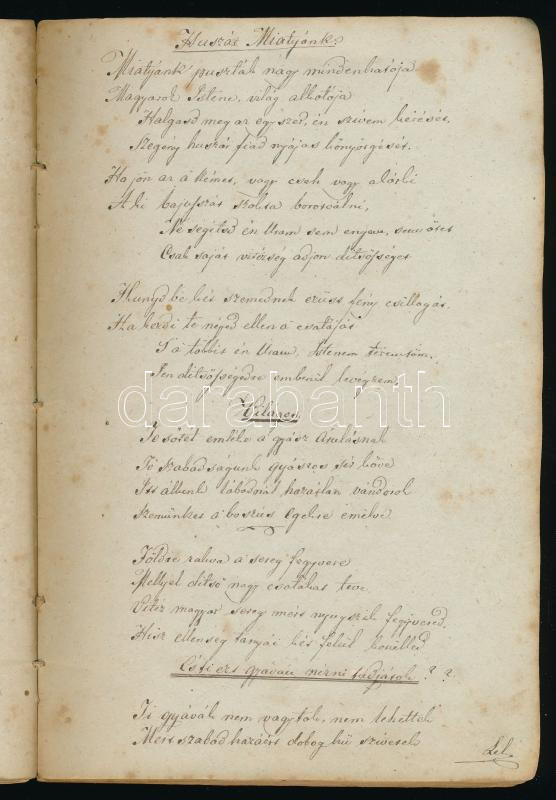 Huszár Miatyánk.
Miatyánk puszták nagy mindenhatója
Magyarok Istene, világ alkotója
Halgasd meg az egyszerű, én szivem kérését,
Szegény huszár fiad nyájas könyörgését.
Ha jön az a német, vagy cseh vagy
A ki bajuszát szokta borotválni,
Ne segitsd én Uram sem engem, sem őtet
Csak saját vitézség adjon ditsőséget
Hunyd bé két szemednek ezüst fény csillagát
Ha kezdi te néped ellen a csatáját
S a többit én Uram, Istenem teremtőm,
Jen ditsősségedre emberül tevegzem
darabanth
Világos.
Te sötét emléke a gyász Árulásnak
Te szabadságunk gyászos sir köve
Itt állunk lábadnál hazátlan vándorok
Szemünket a boszús égekre emelve
Földre rakva a sereg fegyvere
Mellyel ditső nagy csatákat teve
Vitéz magyar sereg mért nyugszik fegyvered
Hisz ellenség tanyái két felül körülted
És ti ezt gyáván nézni tudjátok ? ?
Ti gyávák nem vagytok, nem lehettek
Mert szabad hazáért dobog hű szivetek
Lel